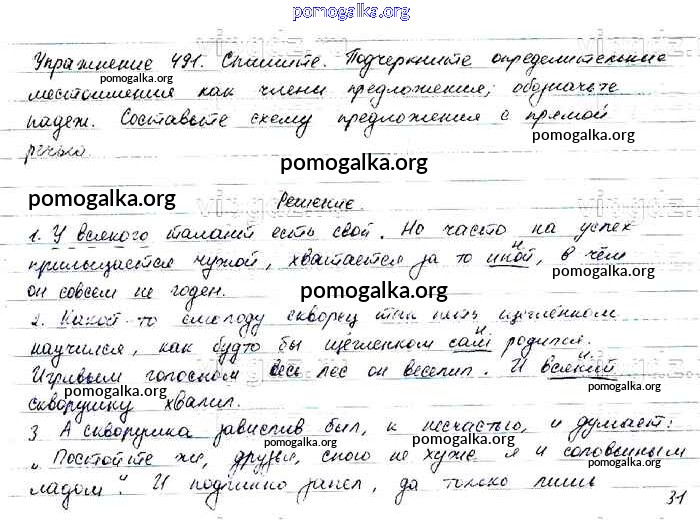 pomogalka.org
Упражнение 491. Спишите. Подчеркните определительные
pomogalka.org
местоимения как члены предложения; обозначьте
падеж. Составьте схему предложения с прямой
речью.
pomogalka.org
pomogalka.org
pomogalka.org
Решение.
1. У всякого талант есть свой. Но часто на успех
прильщается чужой, хватается за то иной, в чём
И
pomogalka.org
он совсем не годен.
pomogalka.org
2. Какой-то смолоду скворец так петь щеглёнком
научился, как будто бы щегленком сам родился.
И
Игривым голоском весь лес он веселил. И всякий
И
скворушку хвалил.
pomogalka.org
pomogalka.org
3 А скворушка завислив был, к несчастью, и думает:
pomogalka.org
pomogalka.org
„Постойте же, друзья, спою не хуже я и соловьиным
pomogalka.org
ладом". И подлинно запел, да только лишь
31